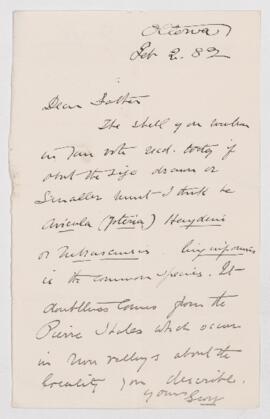 Ottawa
Feb 2. 82
Dear Father
The shell you mention
in your note recd. today if
about the size drawn or
smaller must I think be
Avicula (Pteria) Haydeni
or Nebrascensis. linguiformis
is the common species. It
doubtless comes from the
Pierre Shales which occur
in river valleys about the
locality you describe.
yours
Geo